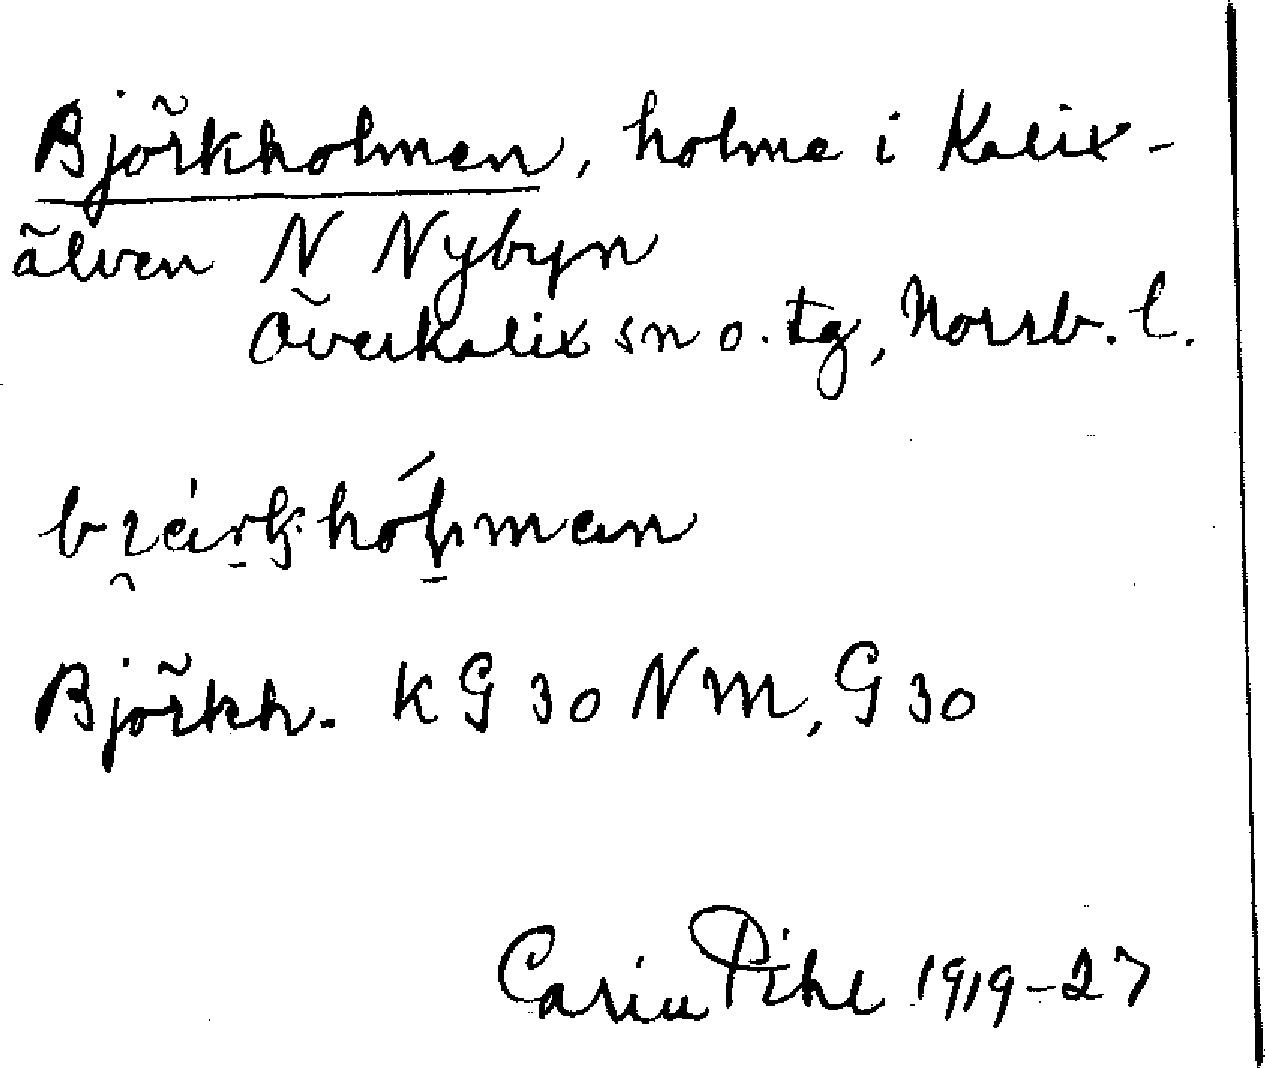 Björkholmen, holme i Kalix-
älven N Nybyn
Överkalix sn o. tg, Norrb. l.
Björkh. KG 30 NM, G 30
Carin Pihl 1919-27